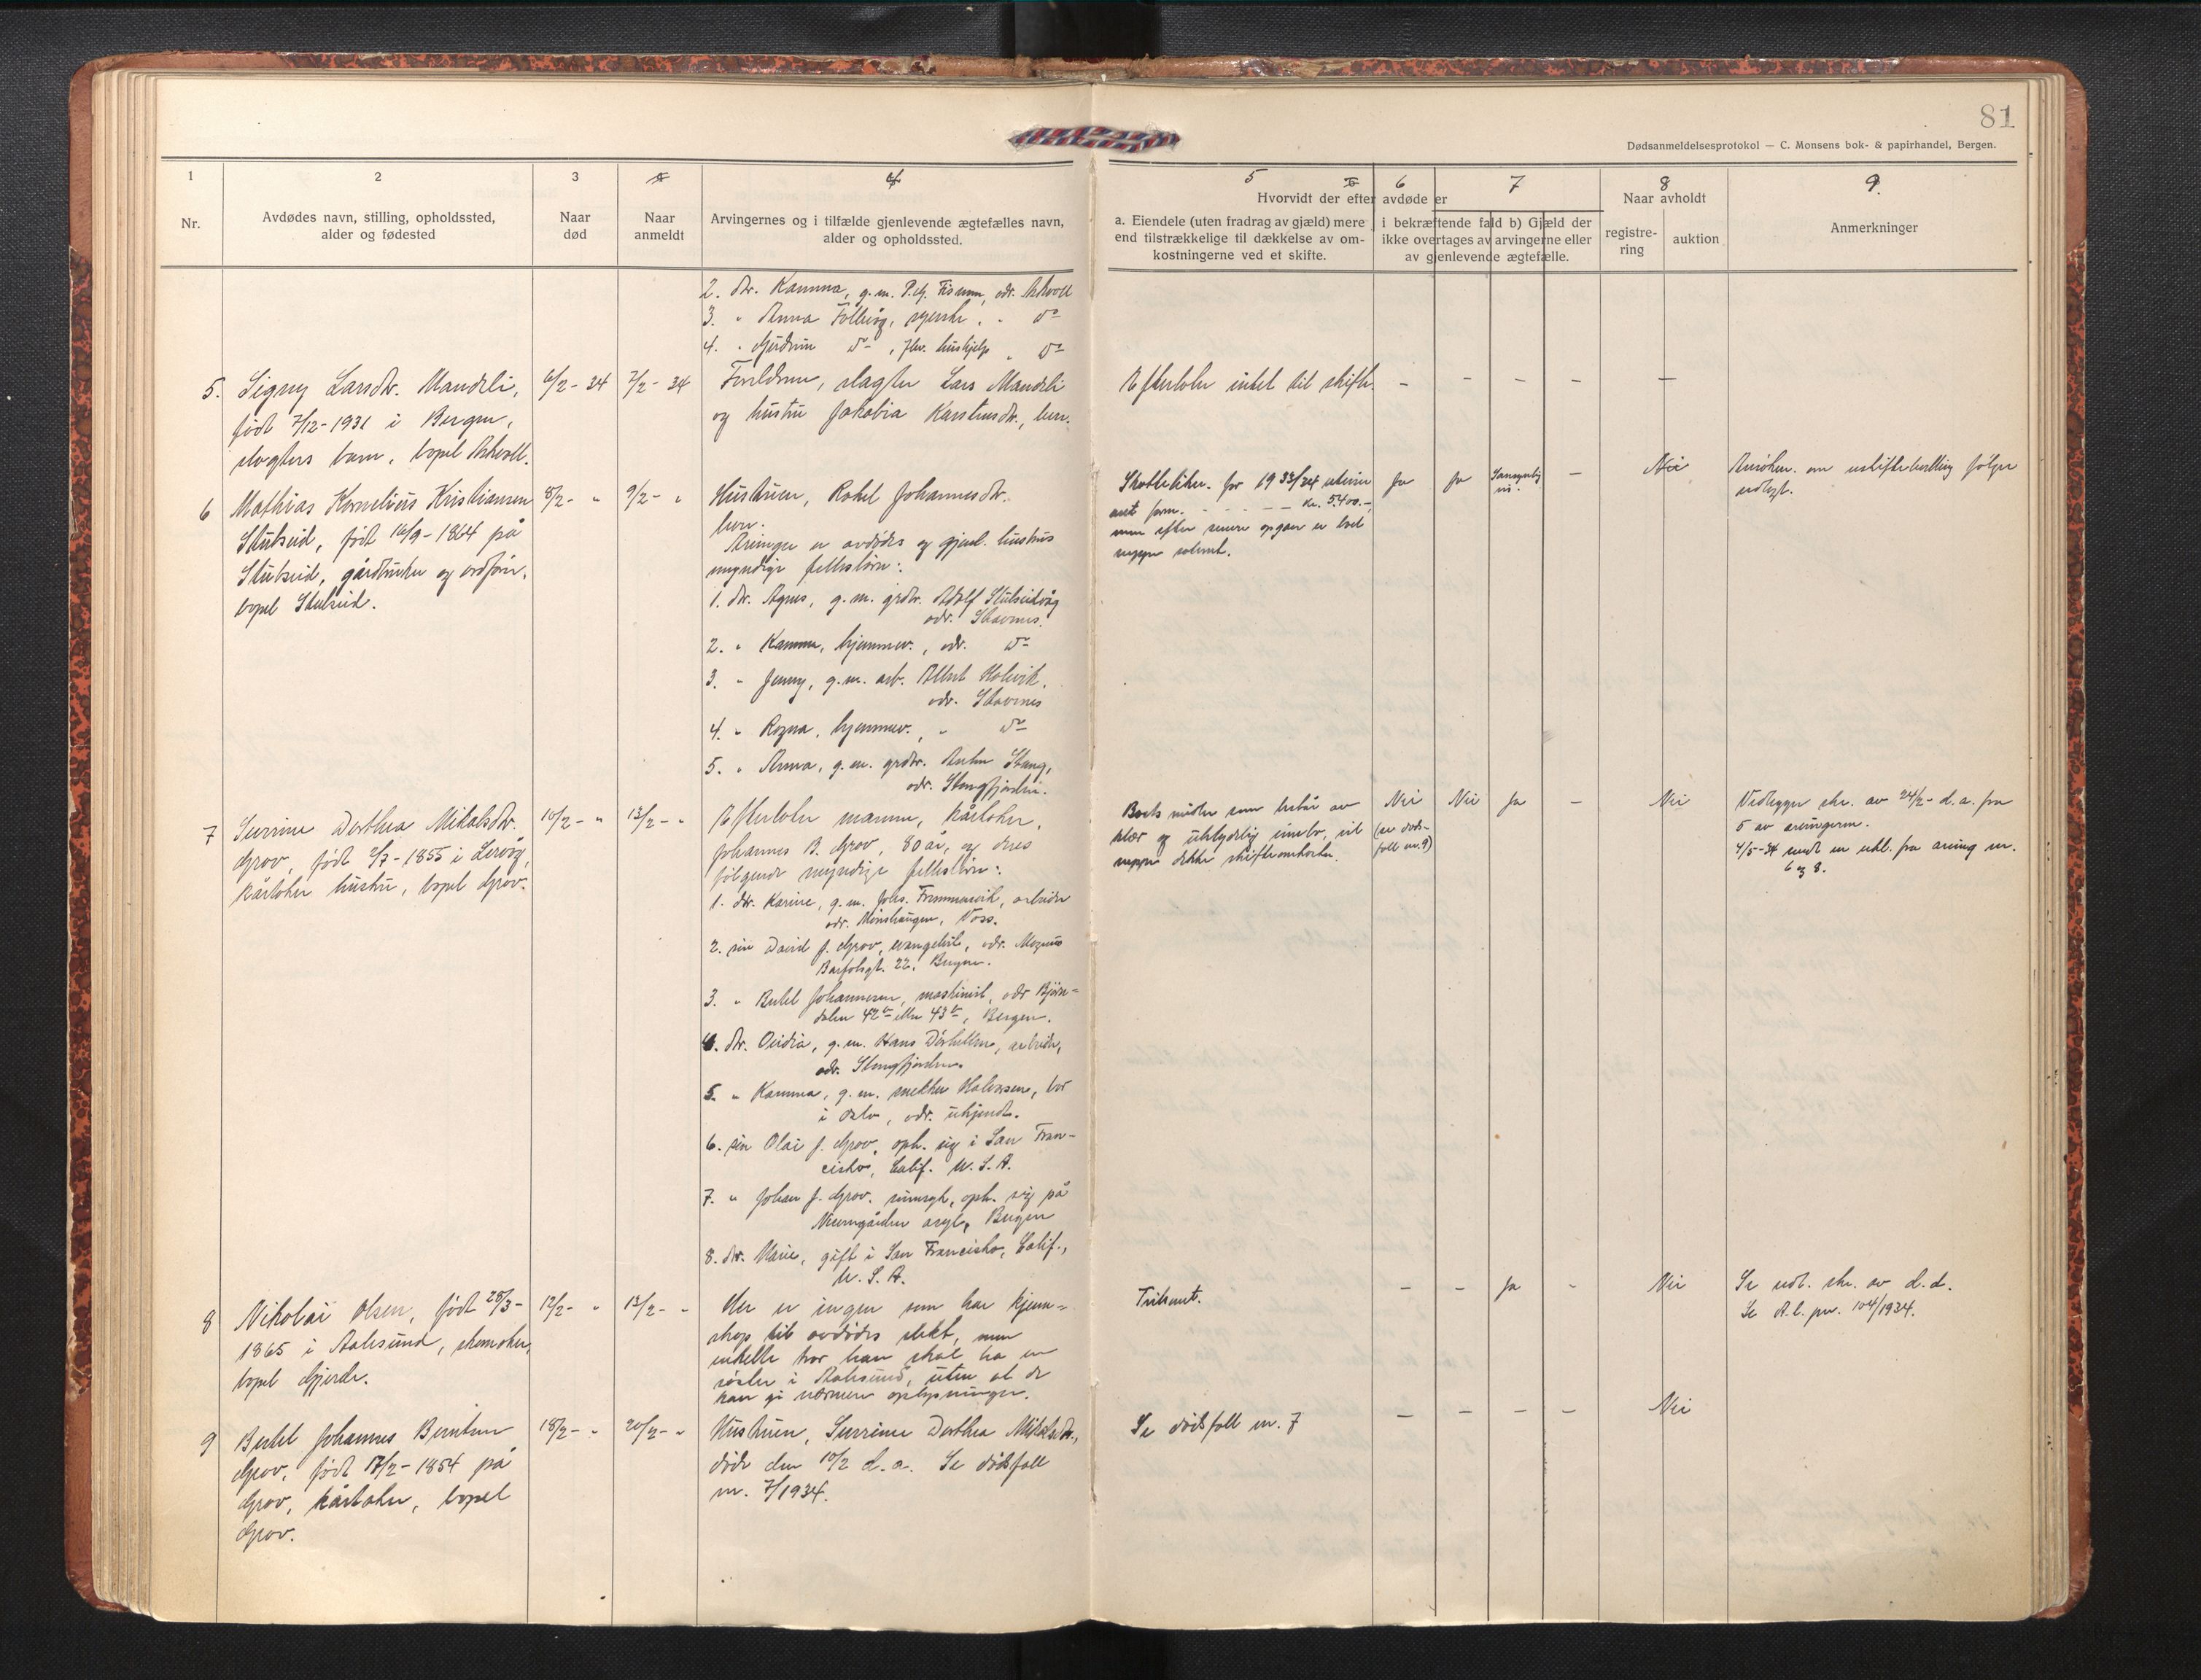 81
Dødsanmeldelsesprotokol — C. Monsens bok- & papirhandel, Bergen.
1
2
3
4
5
6
7
8
9.
Nr.
Avdødes navn, stilling, opholdssted,
alder og fødested
Naar
død
Naar
anmeldt
Arvingernes og i tilfælde gjenlevende ægtefælles navn,
alder og opholdssted.
Hvorvidt der efter avdøde er
a. Eiendele (uten fradrag av gjæld) mere
end tilstrækkelige til dækkelse av om-
kostningerne ved et skifte.
i bekræftende fald b) Gjæld der
ikke overtages av arvingerne eller
av gjenlevende ægtefælle.
Naar avholdt
registre-
ring
auktion
Anmerkninger
2. dtr. Kamma, g. m. P. Fismen, adr. Askvoll
3. " Anna Follevåg, syerske, " do
4. " Gjertrine do, hushjelp " do
5.
Signy Larsdtr. Mandsli,
født 7/12-1931 i Bergen,
slagters barn, bopel Askvoll.
6/2-34
7/2-34
Foreldrene, slagter Lars Mandsli
og hustru Jakobia Karstensdtr., her.
Efterlater intet til skifte.
– – – – –
6
Mathias Kornelius Kristiansen
Stubseid, født 16/9-1864 på
Stubseid, gårdbruker og ordfører,
bopel Stubseid.
8/2- "
9/2- "
Hustruen, Rakel Johannesdtr.
her.
Arvinger er avdødes og gjenl. hustrus
myndige fellesbørn:
1. dtr. Agnes, g. m. grdbr. Adolf Stubseidvåg
adr. Stavenes.
2. " Kamma, hjemmev., adr. do
3. " Jenny, g. m. arb. Albert Holvik,
adr. Stavenes
4. " Ragna, hjemmev., " do
5. " Anna, g. m. grdbr. Anton Stang,
adr. Stongfjorden.
Skattelikn. for 1933/34
ant form. - - - - - kr. 5400.-,
men efter senere opgaver er boet
neppe solvent.
Ja
Ja
Sansynlig-
vis.
–
Nei
Ansøkn. om uskiftebevilling følger
vedlagt.
7
Severine Dorthea Mikalsdtr.
Grov, født 2/7-1855 i Lervåg,
kårtaker hustru, bopel Grov.
10/2- "
13/2- "
Efterlater mannen, kårtaker,
Johannes B. Grov, 80 år, og deres
følgende myndige fellesbørn:
1. dtr. Karine, g. m. Johs. Frammarsvik, arbeider
adr. Mønshaugen, Voss.
2. søn David J. Grov, evangelist, adr. Magnus
Barfotsgt. 22, Bergen.
3. " Bertel Johannesen, maskinist, adr Bjørn-
dalen 42 b eller 43 b, Bergen.
4. dtr. Ovidia, g. m. Hans Dørhellne, arbeider,
adr. Stongfjorden.
5. " Kamma, g. m. snekker Halvorsen, bor
i Oslo, adr. ukjendt.
6. søn Olai J. Grov, oph. sig i San Fran-
cisko, Calif. U. S. A.
7. " Johan J. Grov, sinnsyk, oph. sig på
Neevengården asyl, Bergen
8. dtr. Marie, gift i San Francisko, Calif.,
U. S. A.
Boets midler som består av
klær og ubetydelig innbo, vil
neppe dekke skifteomkostn.
Nei
(se døds-
fall nr. 9)
Nei
Ja
–
Nei
Vedlegger skr. av 24/2- d. a. fra
5 av arvingerne.
4/5-34 sendt en erkl. fra arving nr.
6 og 8.
8
Nikolai Olsen, født 25/3-
1865 i Aalesund, skomaker,
bopel Gjerde.
12/2- "
13/2- "
Her er ingen som har kjenn-
skap til avdødes slekt, men
enkelte tror han skal ha en
søster i Aalesund, uten at de
kan gi nærmere oplysninger.
Tvilsomt.
– –
Ja
–
Nei
Se vedl. skr. av d. d.
Se A. l. nr. 104/1934.
9
Bertel Johannes Berntsen
Grov, født 17/2-1854 på
Grov, kårtaker, bopel
Grov.
18/2- "
20/2- "
Hustruen, Severine Dorthea Mikalsdtr.,
døde den 10/2 d. a. Se dødsfall
nr. 7/1934.
Se dødsfall nr. 7
– – – –
Nei